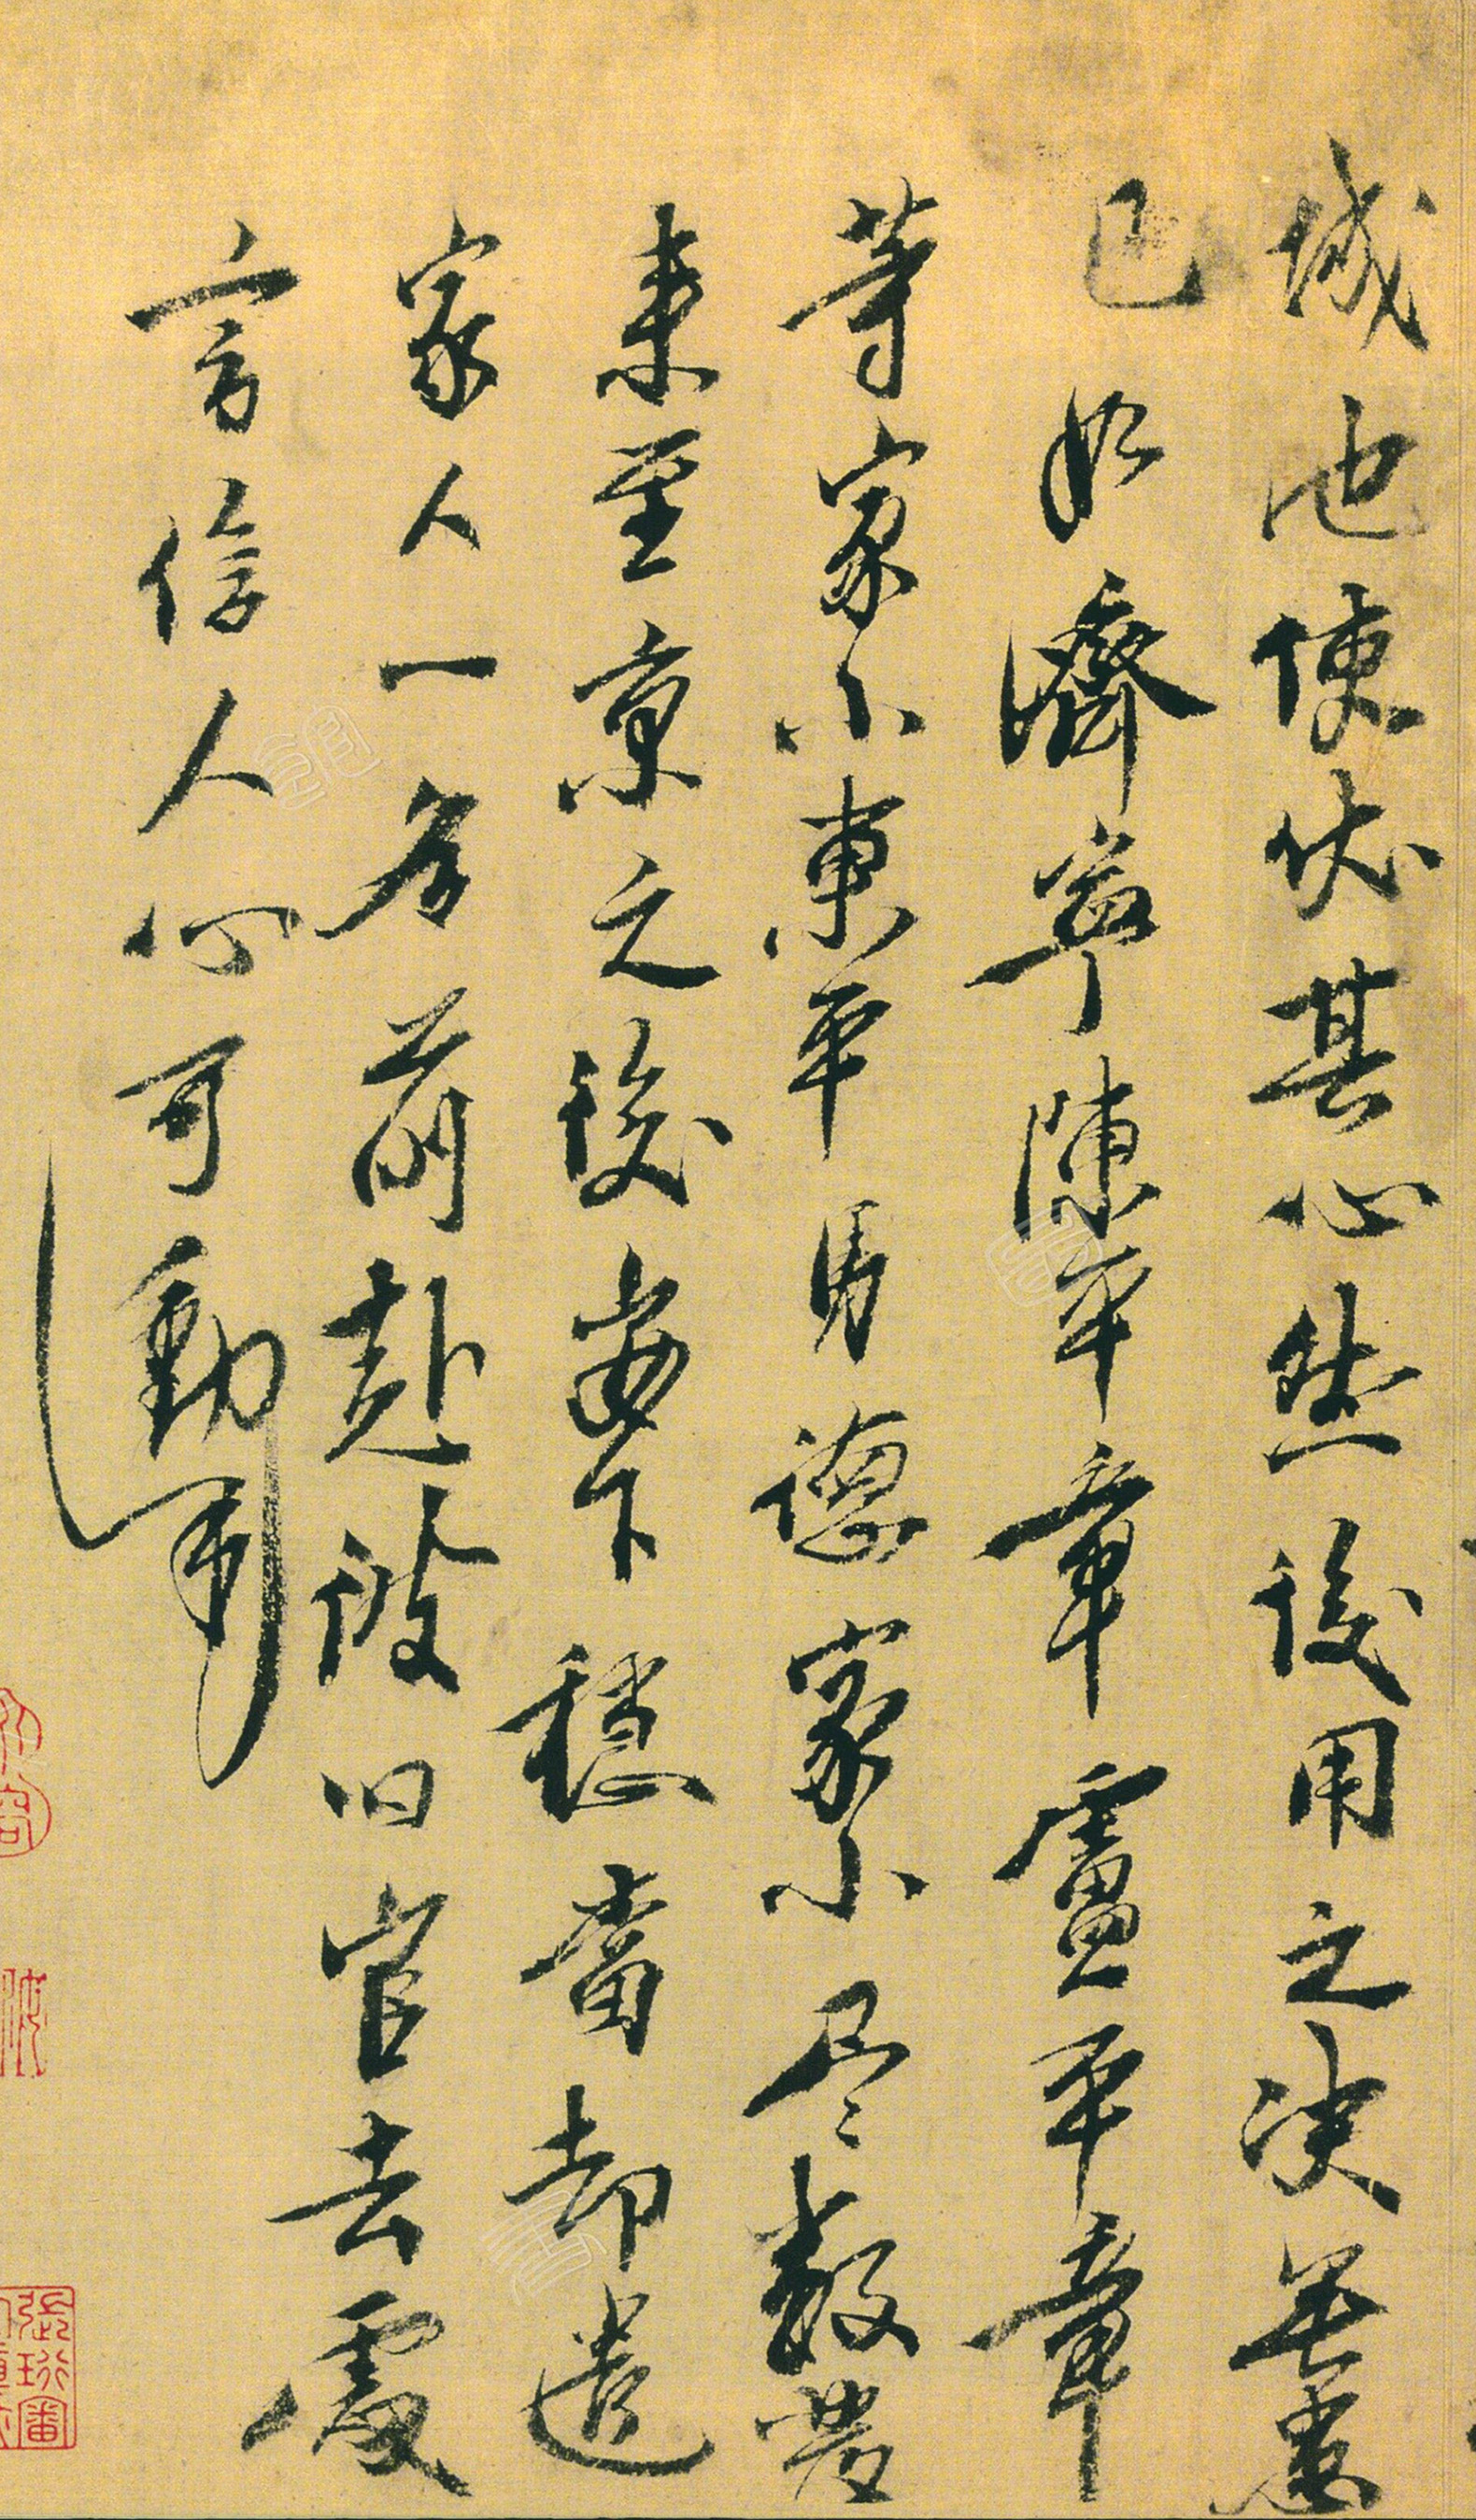 城池使伏其心然後用之決無患
已如濟寧陳平章盧平章
等家小東平馬德家小尽數發
来至京之後安下穩當却遣
家人一名前赴彼旧官去處
言信人心可動